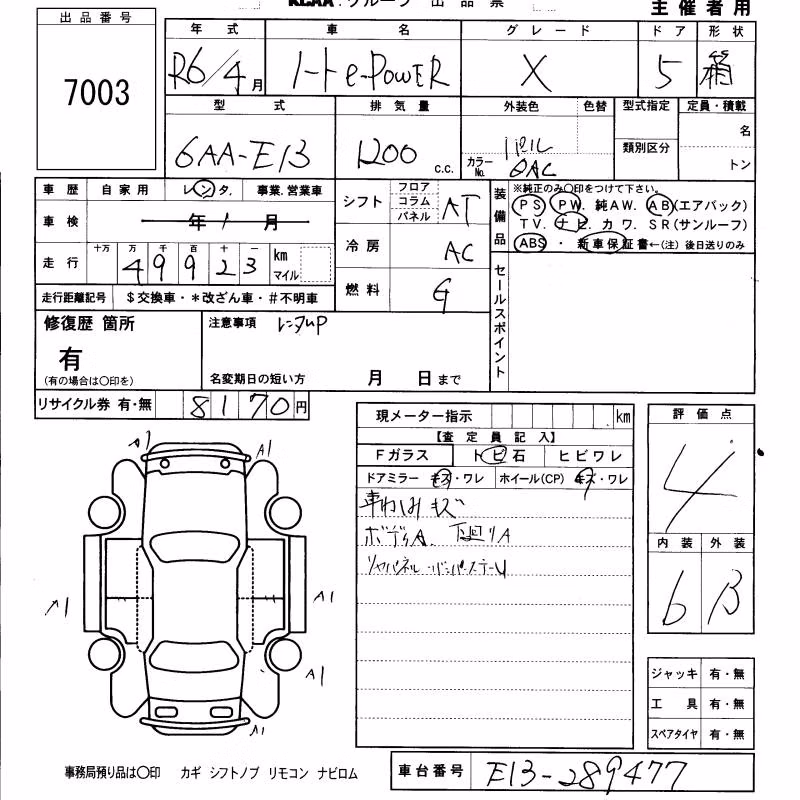 KCAA グループ 出品票 主催者用
出品番号
7003
年式 車名 グレード ドア 形状
R6/4月 ノート e-POWER X 5 箱
型式 排気量 外装色 色替 型式指定 定員・積載
6AA-E13 1200 c.c. パール カラーNo. QAC 類別区分 名
トン
車歴 自家用 レンタ. 事業.営業車
車検 年 月
走行 十万 万 千 百 十 一
49923 km マイル
走行距離記号 $交換車・*改ざん車・#不明車
シフト フロア コラム パネル AT
冷房 AC
燃料 G
装備品 ※純正のみ〇印をつけて下さい。
PS PW. 純AW. AB(エアバック)
TV. ナビ. カワ. SR(サンルーフ)
ABS・新車保証書←(注)後日送りのみ
セールスポイント
修復歴 箇所
有
(有の場合は〇印を)
注意事項 レンタUP
名変期日の短い方 月 日まで
リサイクル券 有・無 8170円
現メーター指示 km
【査定員記入】
Fガラス トビ石 ヒビワレ
ドアミラー キズ・ワレ ホイール(CP) キズ・ワレ
車内よごみ キズ
ボディA. 下廻りA
リヤパネル・バンパーステーU
評価点
4
内装 外装
6 B
A1
A1
A1
A1
A1
A1
ジャッキ 有・無
工具 有・無
スペアタイヤ 有・無
事務局預り品は〇印 カギ シフトノブ リモコン ナビロム
車台番号 E13-289477